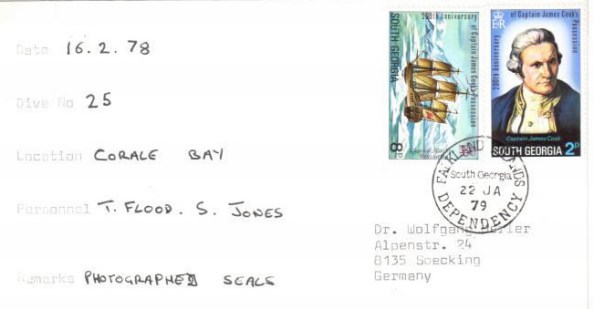 Date 16.2.78
Dive No 25
Location CORALE BAY
Personnel T. FLOOD. S. JONES
Remarks PHOTOGRAPHED SEALS
200th Anniversary of Captain James Cook's Possession
SOUTH GEORGIA
8p
200th Anniversary of Captain James Cook's Possession
E R
Captain James Cook
SOUTH GEORGIA 2p
FALKLAND ISLANDS
South Georgia
22 JA
79
DEPENDENCY
Dr. Wolfgang
Alpenstr. 24
8135 Soecking
Germany